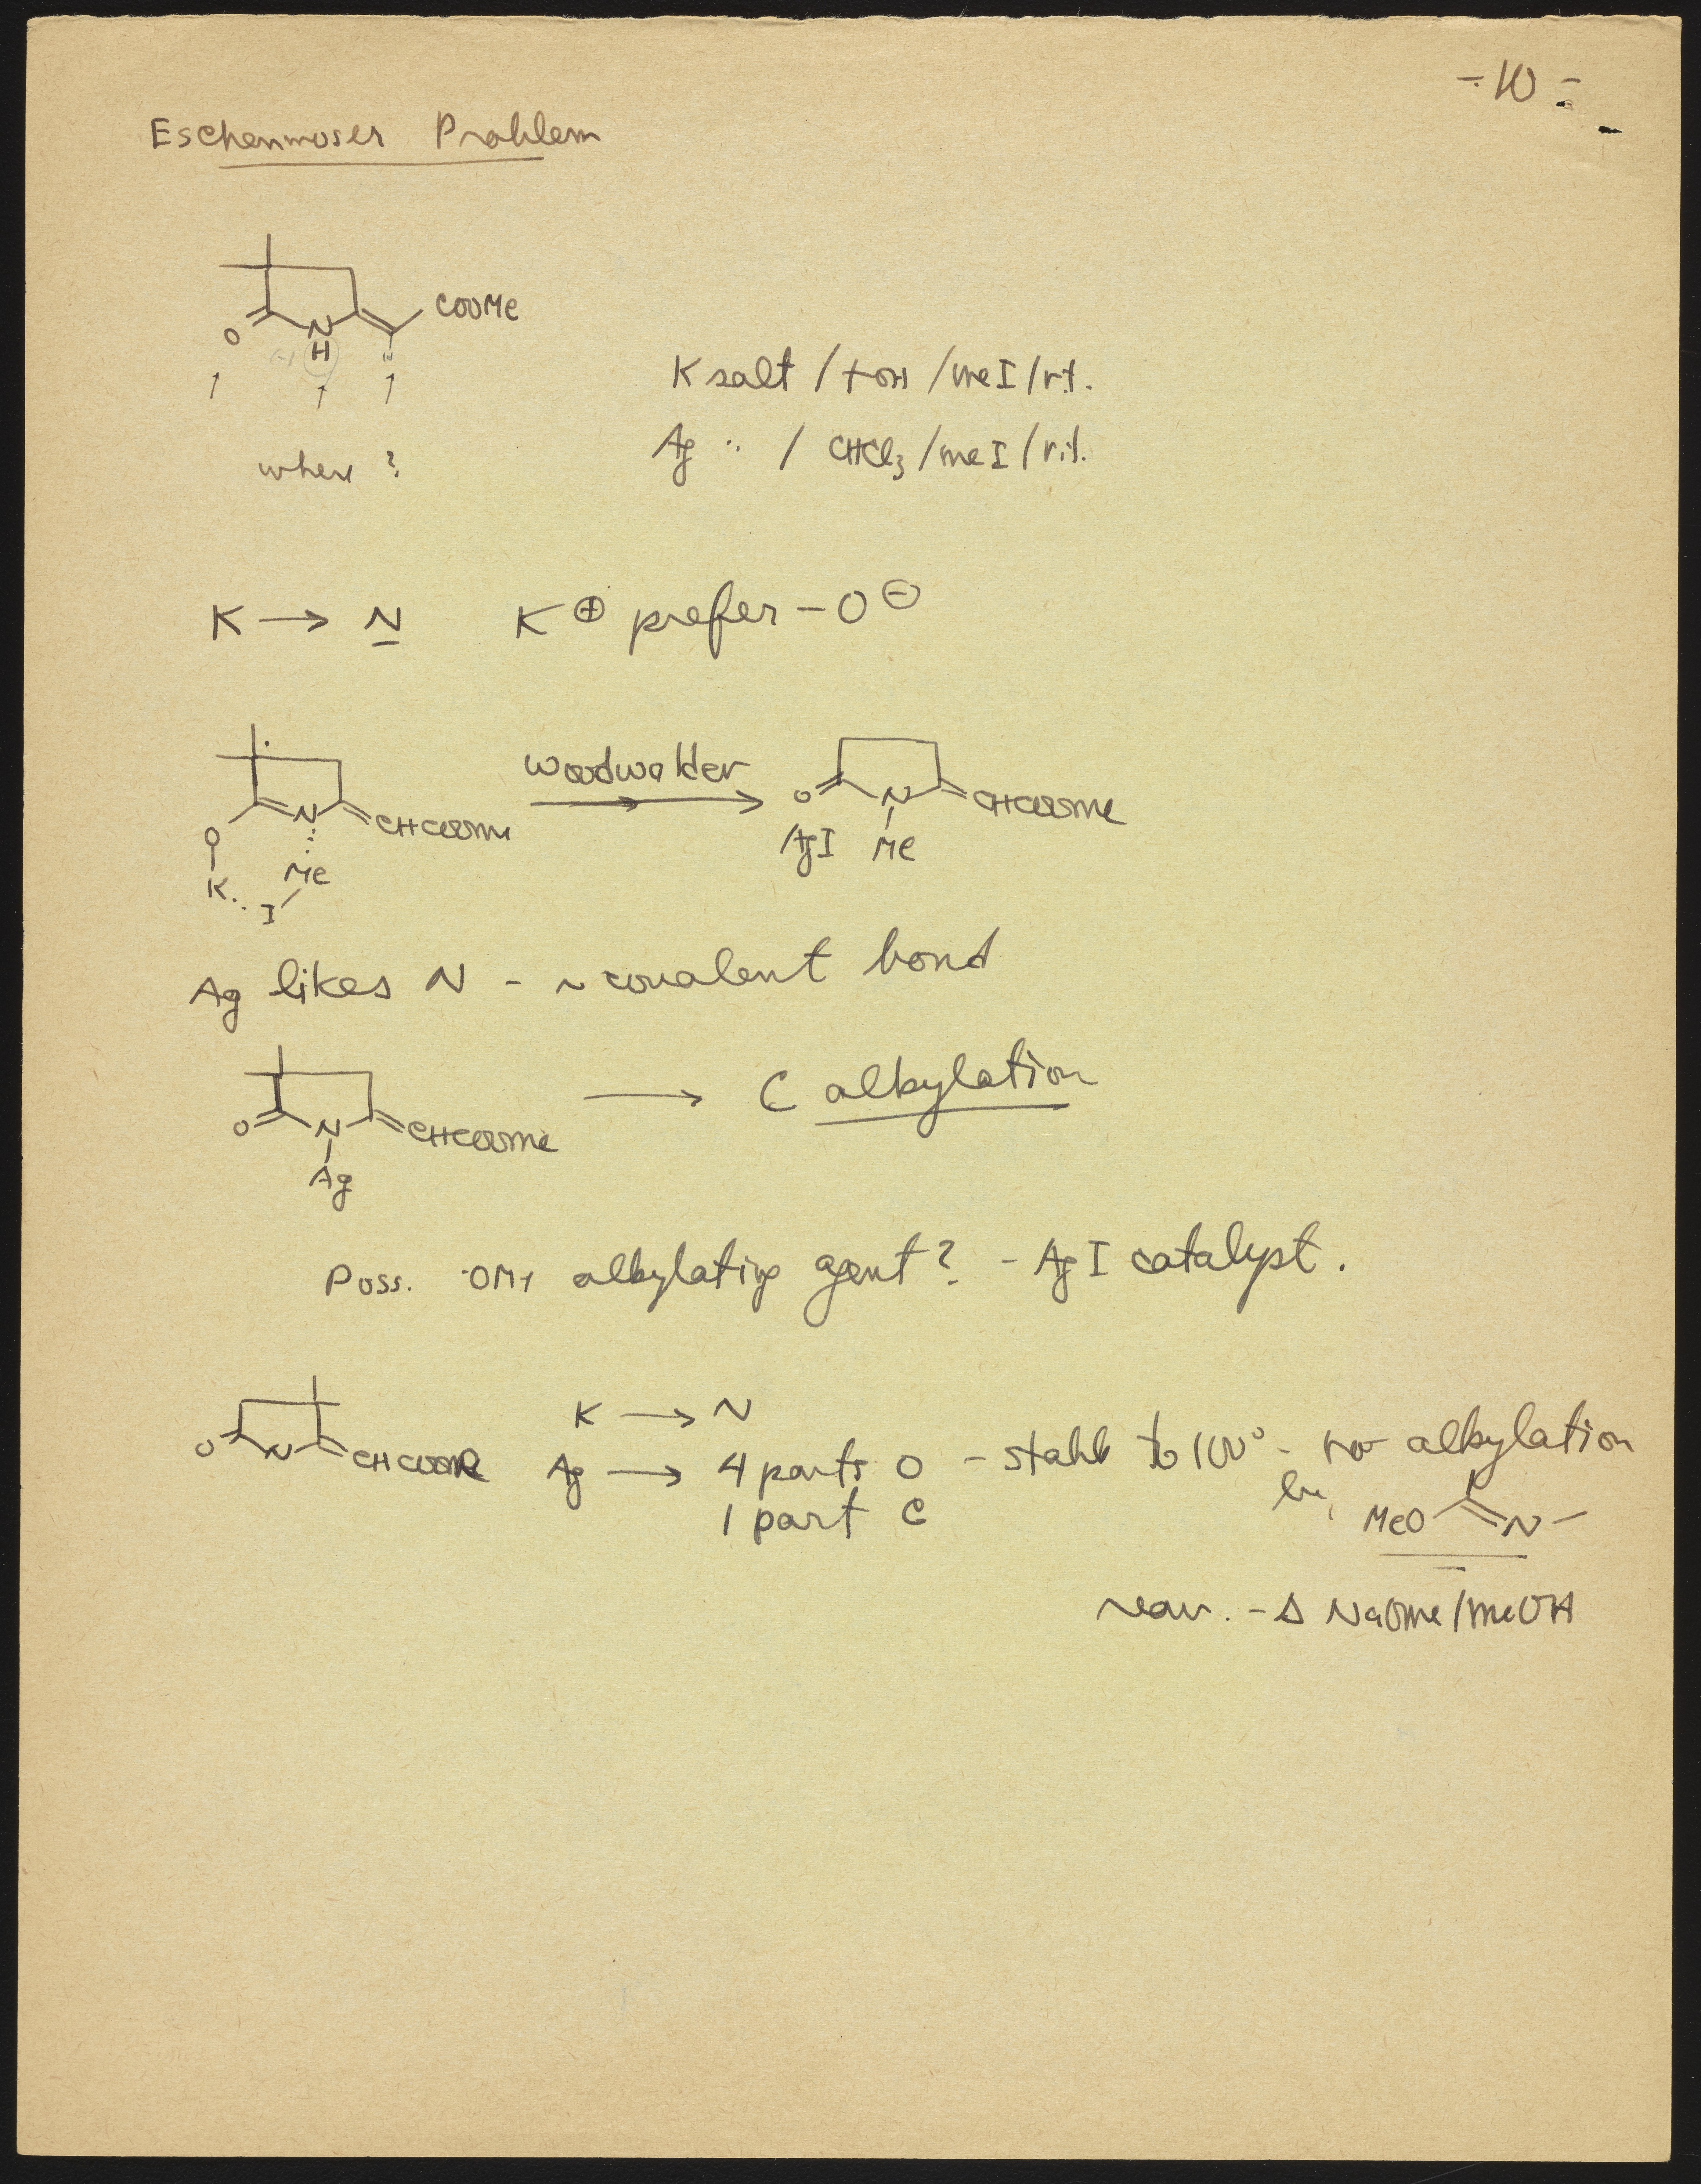 - 10 -
Eschenmoser Problem
COOMe
O N
H
↑ ↑ ↑
where ?
K salt / tOH / MeI / r.t.
Ag " / CHCl3 / MeI / r.t.
K → N K⊕ prefer -O⊖
N CHCOOMe
O
K Me
I
O N CHCOOMe
AgI Me
Ag likes N - ~ covalent bond
O N CHCOOMe
Ag
→ C alkylation
Poss. OMe alkylating agent? - AgI catalyst.
O N CHCOOR
K → N
Ag → 4 parts O - stable to 100° - no alkylation
1 part C
by
MeO N
rear. - Δ NaOMe/MeOH